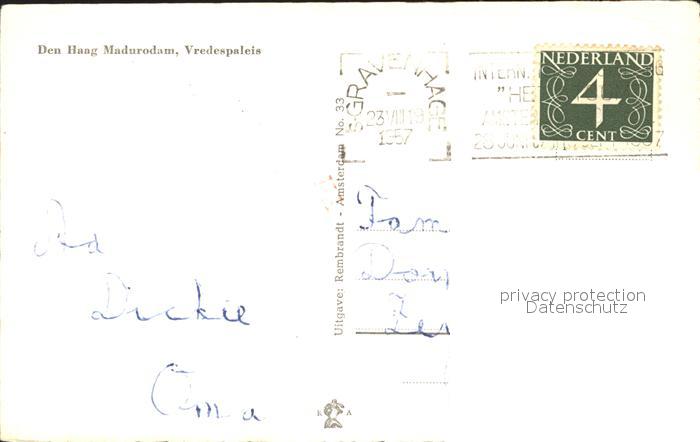 Den Haag Madurodam, Vredespaleis
'SGRAVENHAGE
23 VIII 19
1957
INTERN.
"HE
AMSTE
NEDERLAND
4
CENT
Uitgave: Rembrandt - Amsterdam No. 33
Fam
Ad
Dickie
Oma
privacy protection
Datenschutz
K A